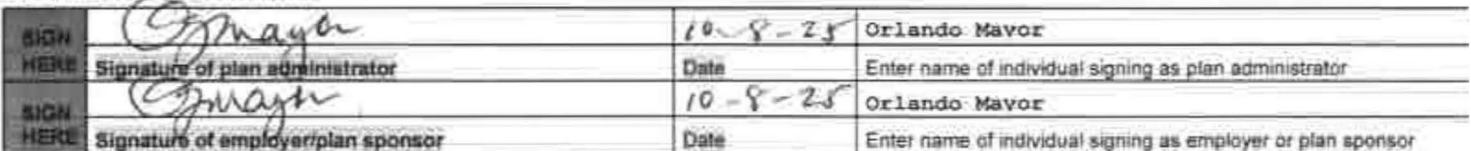 SIGN HERE
10-8-25 Orlando Mavor
Signature of plan administrator Date Enter name of individual signing as plan administrator
SIGN HERE
10-8-25 Orlando Mavor
Signature of employer/plan sponsor Date Enter name of individual signing as employer or plan sponsor